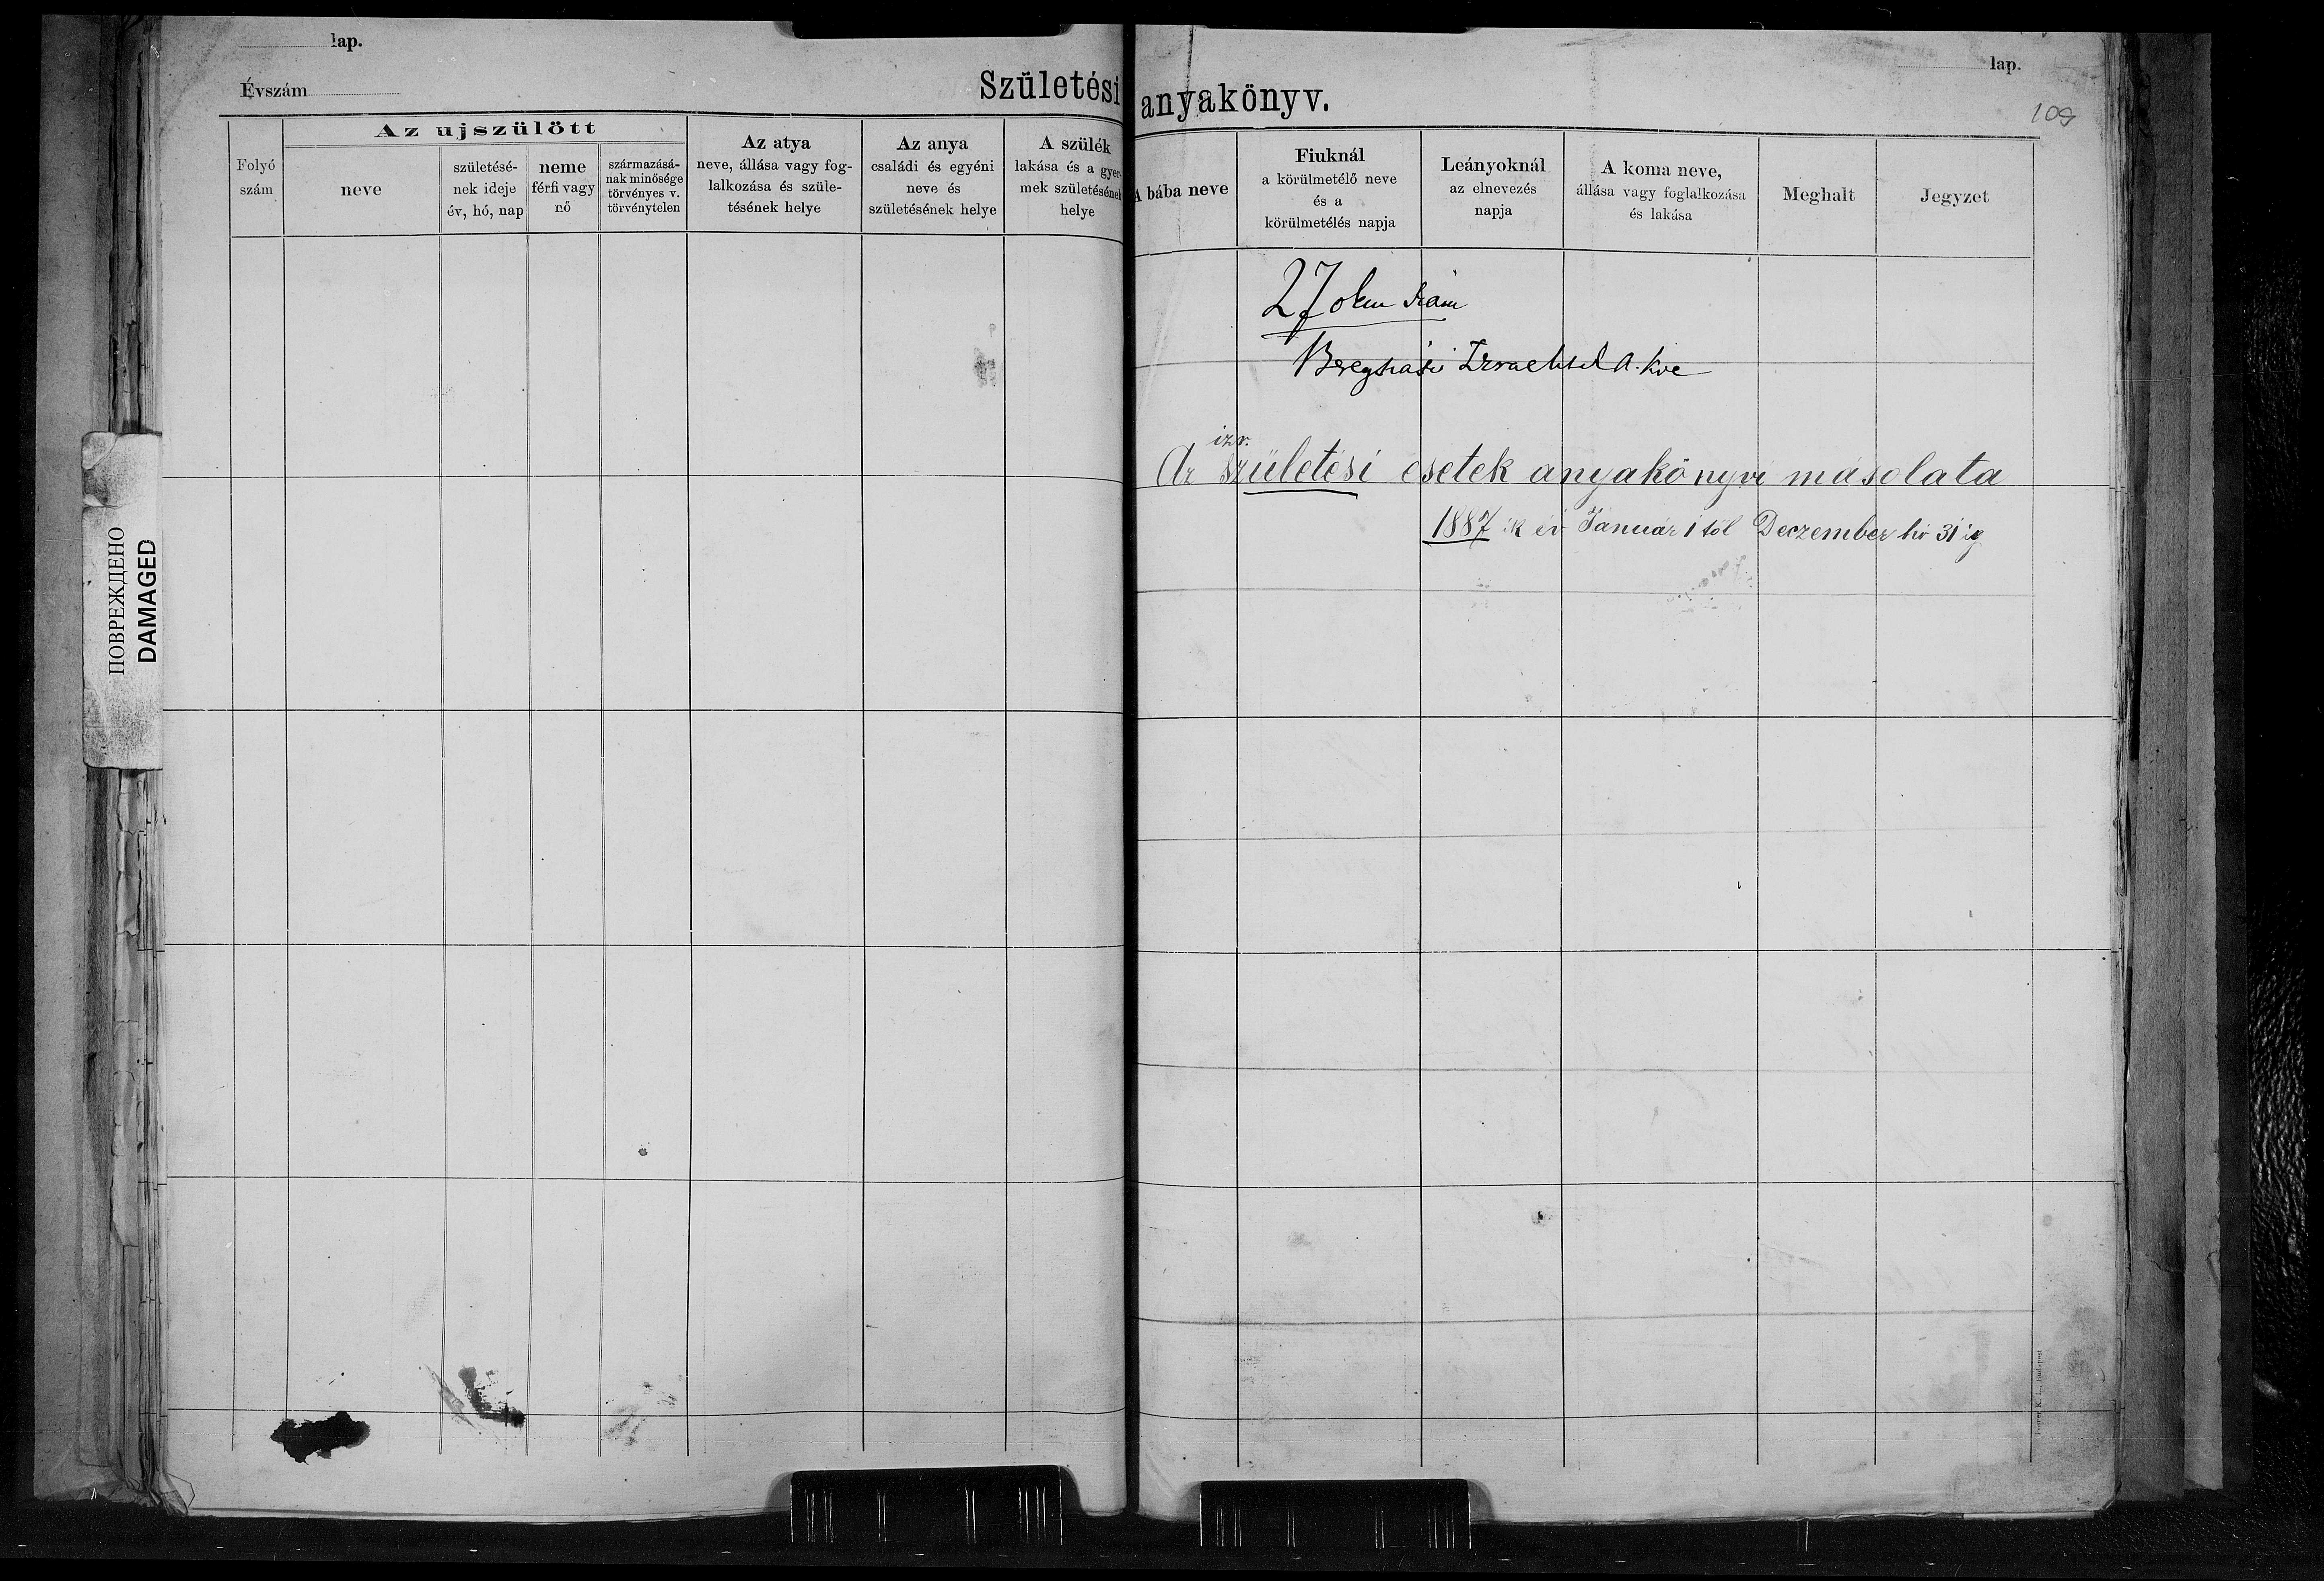 lap.
Évszám
Születési anyakönyv.
lap.
109
Folyó szám
Az ujszülött
neve
születésé-
nek ideje
év, hó, nap
neme
férfi vagy
nő
származásá-
nak minősége
törvényes v.
törvénytelen
Az atya
neve, állása vagy fog-
lalkozása és szüle-
tésének helye
Az anya
családi és egyéni
neve és
születésének helye
A szülék
lakása és a gyer-
mek születésének
helye
A bába neve
Fiuknál
a körülmetélő neve
és a
körülmetélés napja
Leányoknál
az elnevezés
napja
A koma neve,
állása vagy foglalkozása
és lakása
Meghalt
Jegyzet
27
izr.
Az születési esetek anyakönyvi másolata
1887 ik év Január 1 től Deczember hó 31 ig
ПОВРЕЖДЕНО
DAMAGED
Budapest